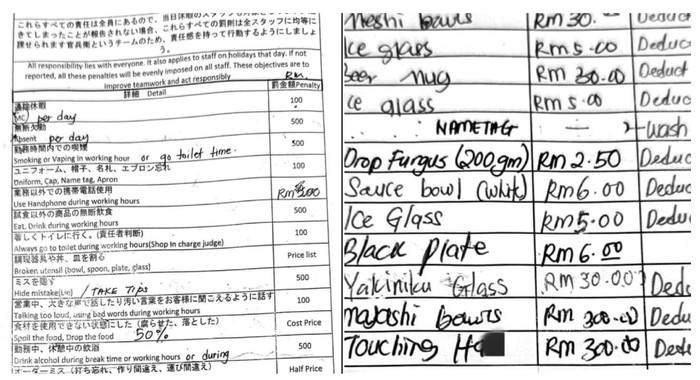 これらすべての責任は全員にあるので、当日休暇の
きてしまったことが報告されない場合、これらすべての罰則は全スタッフに均等に
課せられます官兵衛というチームのため、責任感を持って行動するようにしましょ
う。
All responsibility lies with everyone. It also applies to staff on holidays that day. If not
reported, all these penalties will be evenly imposed on all staff. These objectives are to
improve teamwork and act responsibly
RM.
詳細 Detail 罰金額Penalty
通院休暇
MC) per day 100
無断欠勤
Absent per day 500
勤務時間内での喫煙
Smoking or Vaping in working hour or go toilet time. 500
ユニフォーム、帽子、名札、エプロン忘れ
Uniform, Cap, Name tag, Apron 100
業務以外での携帯電話使用
Use Handphone during working hours
試食以外の商品の無断飲食
Eat, Drink during working hours 500
著しくトイレに行く。(責任者判断)
Always go to toilet during working hours(Shop In charge judge) 100
調理器具や丼、皿を割る
Broken utensil (bowl, spoon, plate, glass) Price list
ミスを隠す
Hide mistake(Lie) / TAKE TIPS 500
営業中、大きな声で話したり汚い言葉をお客様に聞こえるように話す
Talking too loud, using bad words during working hours 100
食材を使用できない状態にした (腐らせた、落とした)
Spoil the food, Drop the food 50% Cost Price
勤務中、休憩中の飲酒
Drink alcohol during break time or working hours or during 500
オーダーミス (打ち忘れ、作り間違え、運び間違え) Half Price
Meshi bowls RM 30. Deduct
Ice glass RM 5.00 Deduct
Beer mug RM 30.00 Deduct
Ice glass RM 5.00 Deduc
NAMETAG — Wash
Drop Fungus (200gm) RM 2.50 Deduc
Sauce bowl (White) RM 6.00 Deduc
Ice Glass RM 5.00 Deduc
Black Plate RM 6.00
Yakiniku Glass RM 30.00 Dedu
Mayashi Bowls RM 300.00 Dedu
Touching Ha RM 300.00 Dedu